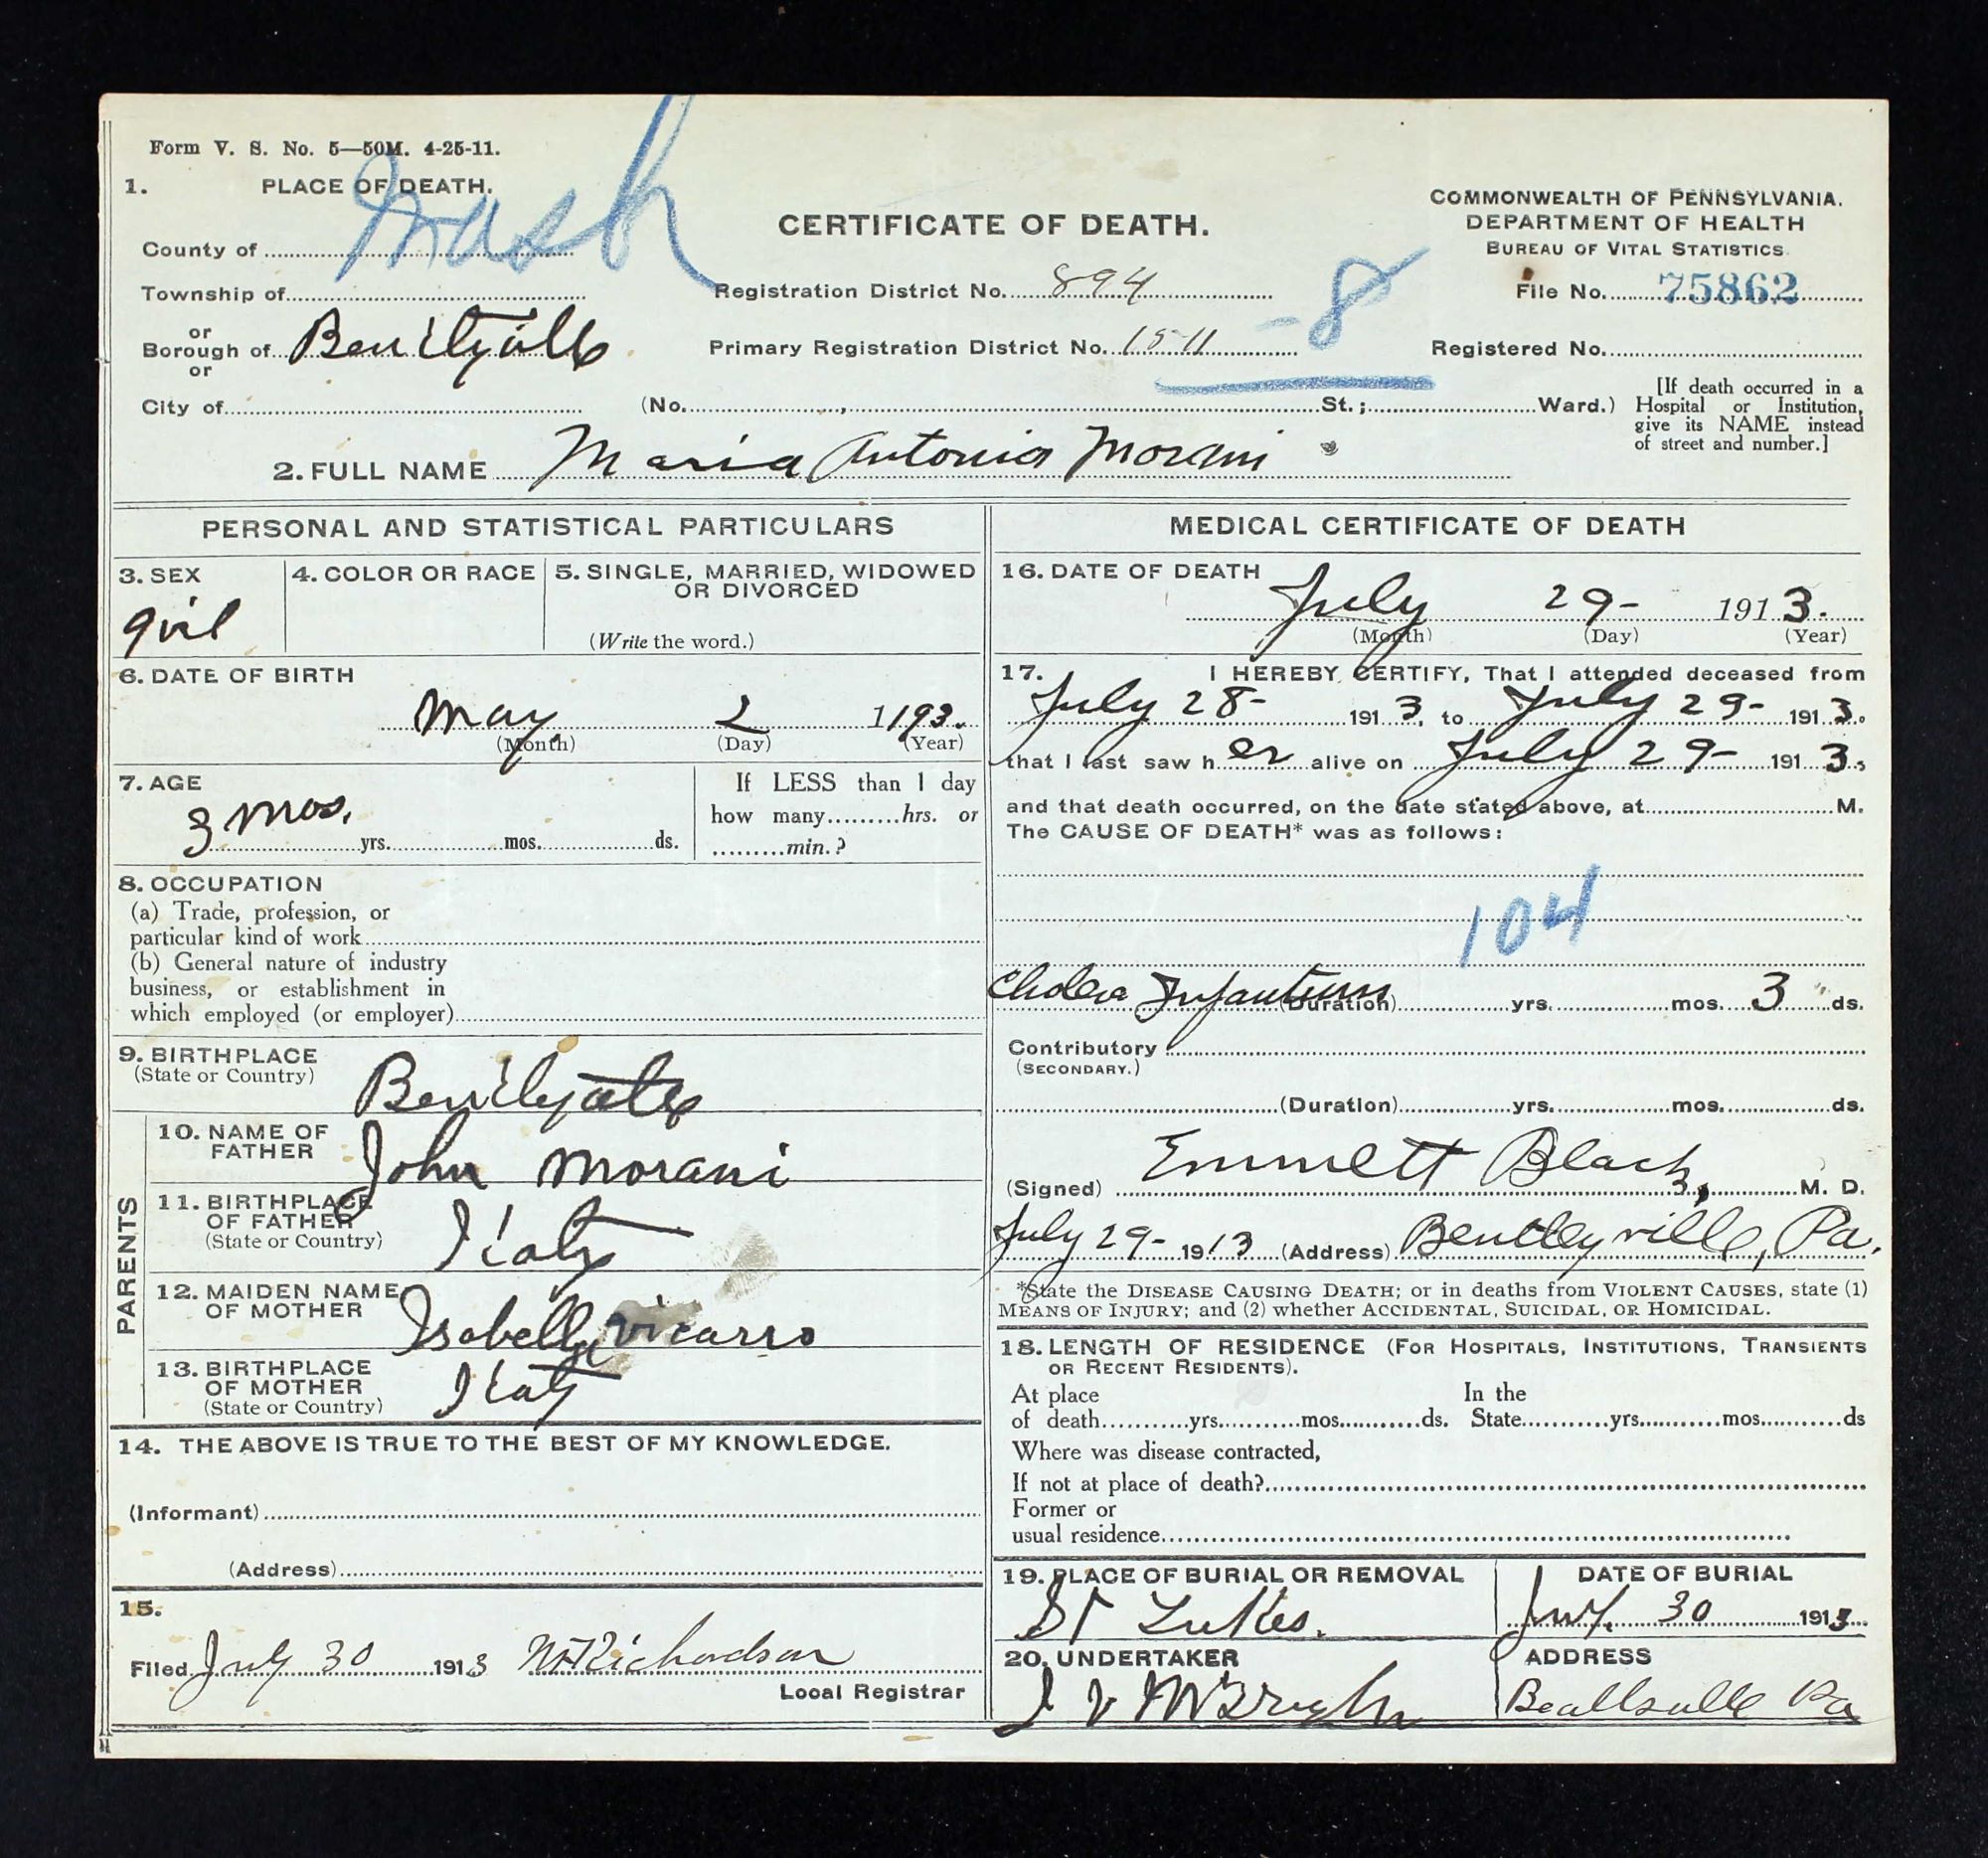 Form V. S. No. 5—50M. 4-25-11.
1. PLACE OF DEATH.
County of Wash
Township of
or
Borough of Bentlyville
or
City of
CERTIFICATE OF DEATH.
Registration District No. 894
Primary Registration District No. 1511 -8
(No. , St.; Ward.)
COMMONWEALTH OF PENNSYLVANIA.
DEPARTMENT OF HEALTH
BUREAU OF VITAL STATISTICS.
File No. 75862
Registered No.
[If death occurred in a
Hospital or Institution,
give its NAME instead
of street and number.]
2. FULL NAME Maria Antonia Morani
PERSONAL AND STATISTICAL PARTICULARS
3. SEX
girl
4. COLOR OR RACE
5. SINGLE, MARRIED, WIDOWED
OR DIVORCED
(Write the word.)
6. DATE OF BIRTH
May 2 1193.
(Month) (Day) (Year)
7. AGE
3 mos.
yrs. mos. ds.
If LESS than 1 day
how many hrs. or
min.?
8. OCCUPATION
(a) Trade, profession, or
particular kind of work
(b) General nature of industry
business, or establishment in
which employed (or employer)
9. BIRTHPLACE
(State or Country)
PARENTS
10. NAME OF
FATHER
John Morani
11. BIRTHPLACE
OF FATHER
(State or Country)
Italy
12. MAIDEN NAME
OF MOTHER
Isabella Vicarro
13. BIRTHPLACE
OF MOTHER
(State or Country)
Italy
14. THE ABOVE IS TRUE TO THE BEST OF MY KNOWLEDGE.
(Informant)
(Address)
15.
Filed July 30 1913 Richardson
Local Registrar
MEDICAL CERTIFICATE OF DEATH
16. DATE OF DEATH
July 29- 1913.
(Month) (Day) (Year)
17. I HEREBY CERTIFY, That I attended deceased from
July 28- 1913, to July 29- 1913.
that I last saw her alive on July 29- 1913.,
and that death occurred, on the date stated above, at M.
The CAUSE OF DEATH* was as follows:
104
Cholera Infantum (Duration) yrs. mos. 3 ds.
Contributory
(SECONDARY.)
(Duration) yrs. mos. ds.
(Signed) Emmett Black, M. D.
July 29- 1913 (Address) Bentleyville, Pa.
*State the DISEASE CAUSING DEATH; or in deaths from VIOLENT CAUSES, state (1)
MEANS OF INJURY; and (2) whether ACCIDENTAL, SUICIDAL, OR HOMICIDAL.
18. LENGTH OF RESIDENCE (FOR HOSPITALS, INSTITUTIONS, TRANSIENTS
OR RECENT RESIDENTS).
At place In the
of death yrs. mos. ds. State yrs. mos. ds
Where was disease contracted,
If not at place of death?
Former or
usual residence
19. PLACE OF BURIAL OR REMOVAL
St Lukes.
DATE OF BURIAL
July 30 1913
20. UNDERTAKER
ADDRESS
Beallsville Pa